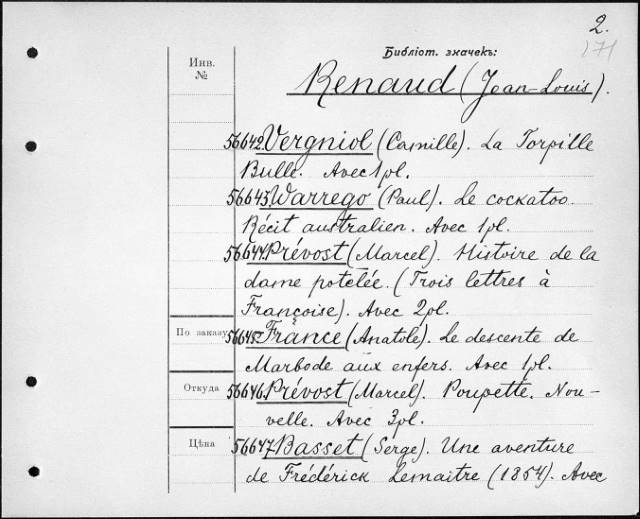 2.
171
Библіот. значекъ:
Инв.
№
Renaud (Jean-Louis).
56642 Vergniol (Camille). La Torpille
Bulle. Avec 1 pl.
56643 Warrego (Paul). Le cockatoo.
Récit australien. Avec 1 pl.
56644 Prévost (Marcel). Histoire de la
dame potelée. (Trois lettres à
Françoise). Avec 2 pl.
По заказу
56645 France (Anatole). Le descente de
Marbode aux enfers. Avec 1 pl.
Откуда
56646 Prévost (Marcel). Poupette. Nou-
velle. Avec 3 pl.
Цѣна
56647 Basset (Serge). Une aventure
de Frédérick Lemaitre (1854). Avec